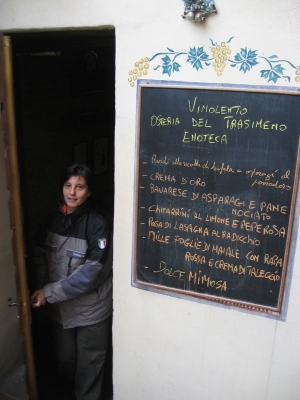 VINOLENTO
OSTERIA DEL TRASIMENO
ENOTECA
di
pomodoro
- CREMA D'ORO
- BAVARESE DI ASPARAGI E PANE
NOCIATO
- CHITARRINI AL LIMONE E PEPE ROSA
- ROSA DI LASAGNA AL RADICCHIO
- MILLE FOGLIE DI MAIALE CON RAPA
ROSSA E CREMA DI TALEGGIO
- DOLCE MIMOSA